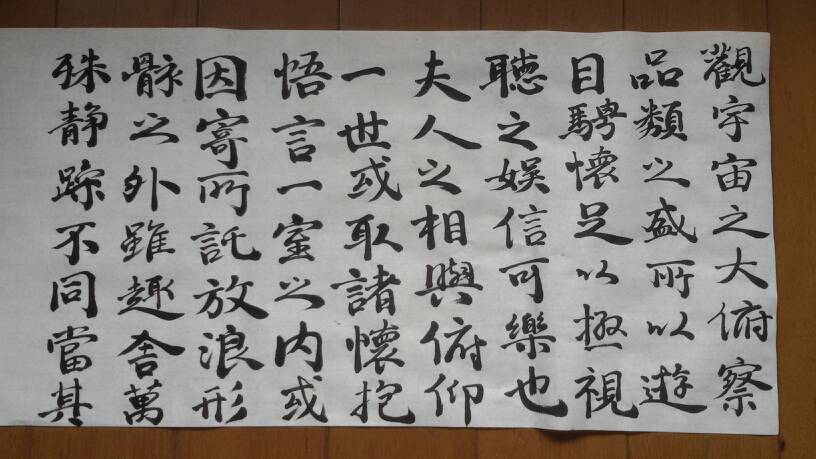 觀宇宙之大俯察
品類之盛所以遊
目騁懷足以極視
聽之娛信可樂也
夫人之相與俯仰
一世或取諸懷抱
悟言一室之内或
因寄所託放浪形
骸之外雖趣舍萬
殊静躁不同當其